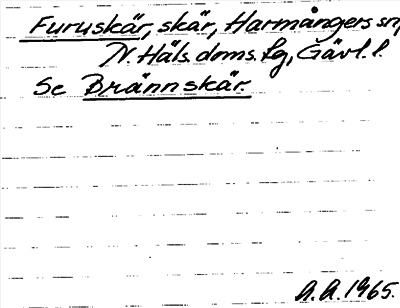 Furuskär, skär, Harmångers sn,
N. Häls. doms. lg, Gävl. l.
Se Brännskär.
A. A. 1965.